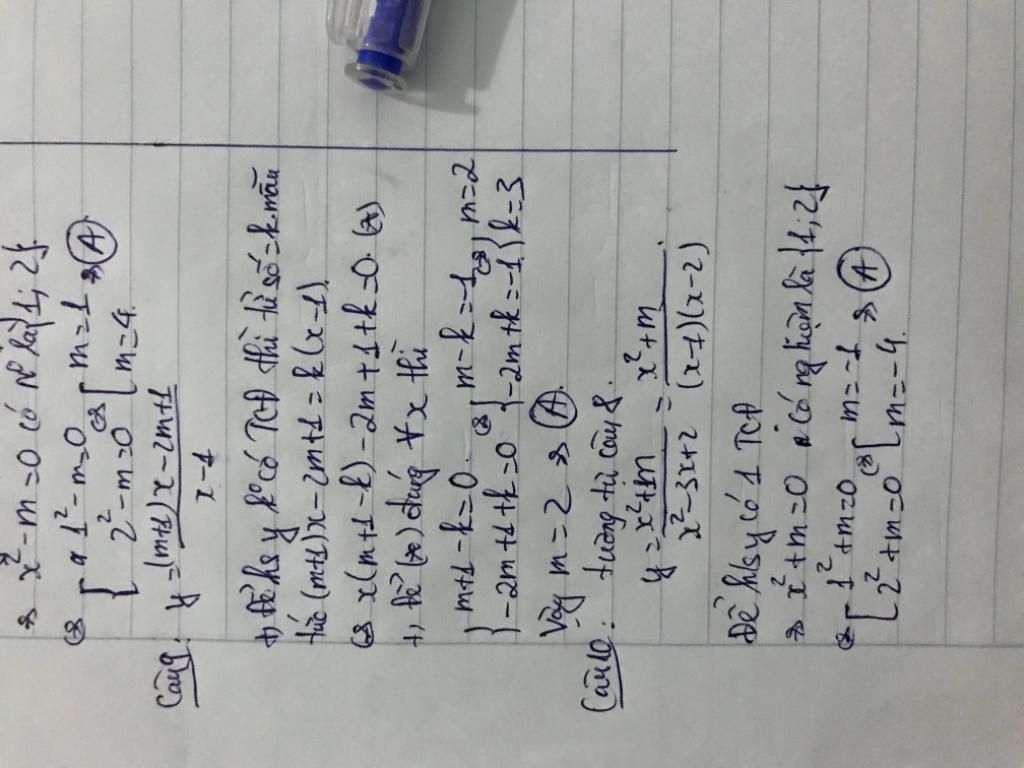 ⇒ x² - m = 0 có N⁰ là {1; 2}
⇔ [ 1² - m = 0
2² - m = 0 ⇔ [ m = 1
m = 4 ⇒ Ⓐ
Câu 9: y = (m+1)x - 2m + 1 / x - 1
+) Để hs y k⁰ có TCĐ thì tử số = k.mẫu
tức (m+1)x - 2m + 1 = k(x - 1)
⇔ x(m + 1 - k) - 2m + 1 + k = 0 (*)
+) Để (*) đúng ∀x thì
{ m + 1 - k = 0
-2m + 1 + k = 0 ⇔ { m - k = -1
-2m + k = -1 ⇔ { m = 2
k = 3
Vậy m = 2 ⇒ Ⓐ
Câu 10: tương tự câu 8.
y = x² + m / x² - 3x + 2 = x² + m / (x - 1)(x - 2)
Để h/s y có 1 TCĐ
⇒ x² + m = 0 có nghiệm là {1; 2}
⇔ [ 1² + m = 0
2² + m = 0 ⇔ [ m = -1
m = -4 ⇒ Ⓐ